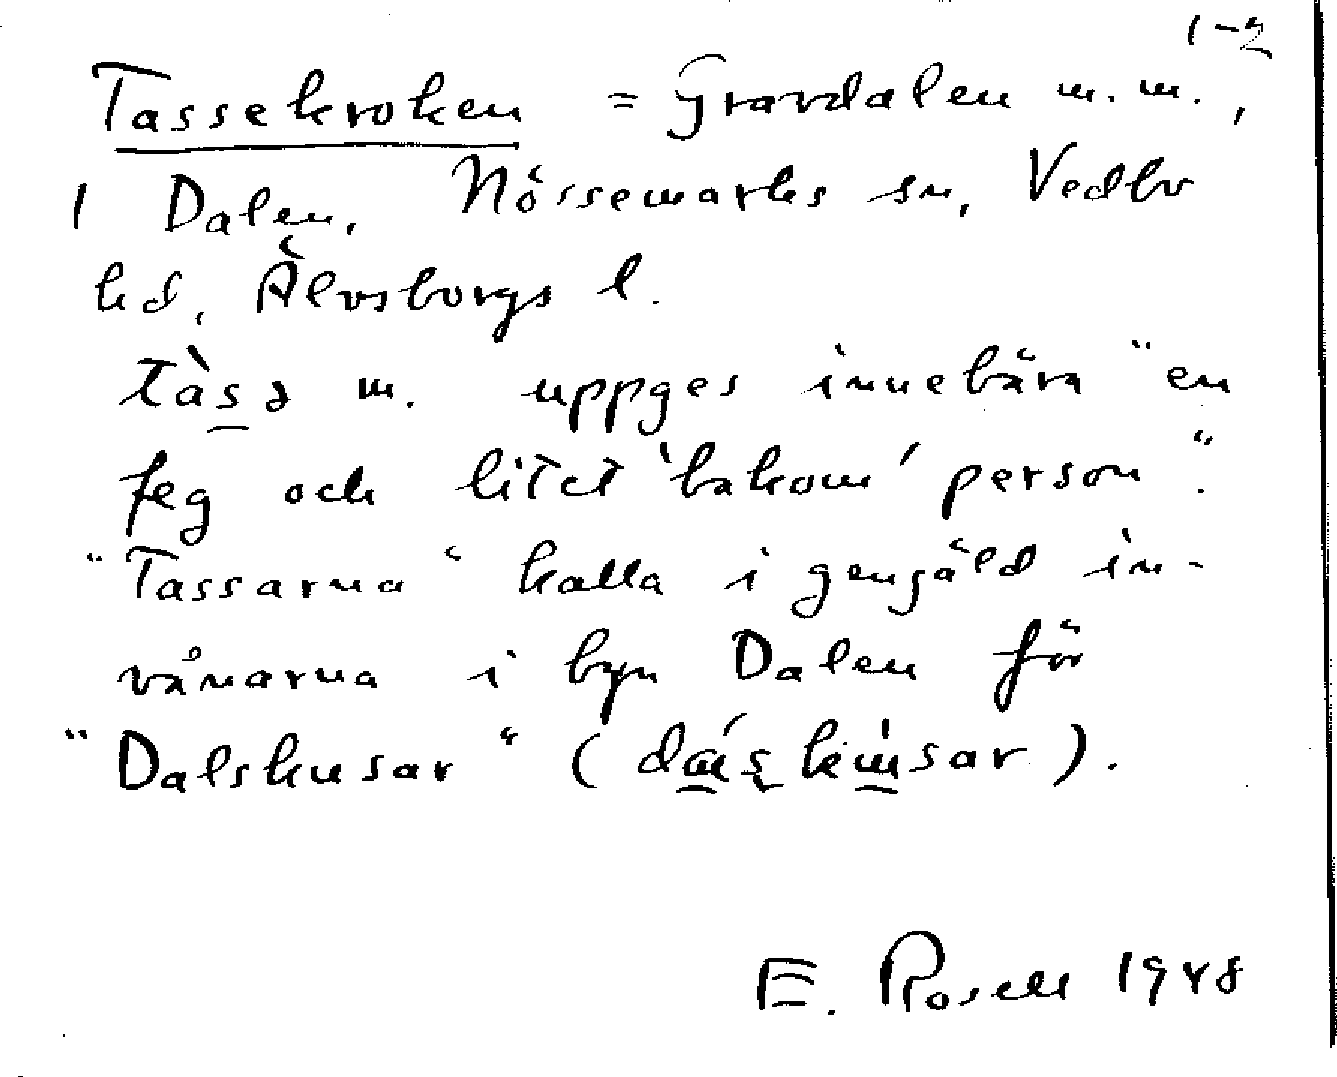 1-2
Tassekroken = Gravdalen m.m.,
1 Dalen, Nössemarks sn, Vedbo
hd, Älvsborgs l.
tàsə m. uppges innebära "en
feg och litet 'bakom' person".
"Tassarna" kalla i gengäld in-
vånarna i byn Dalen för
"Dalskusar" ( ).
E. Rosell 1948